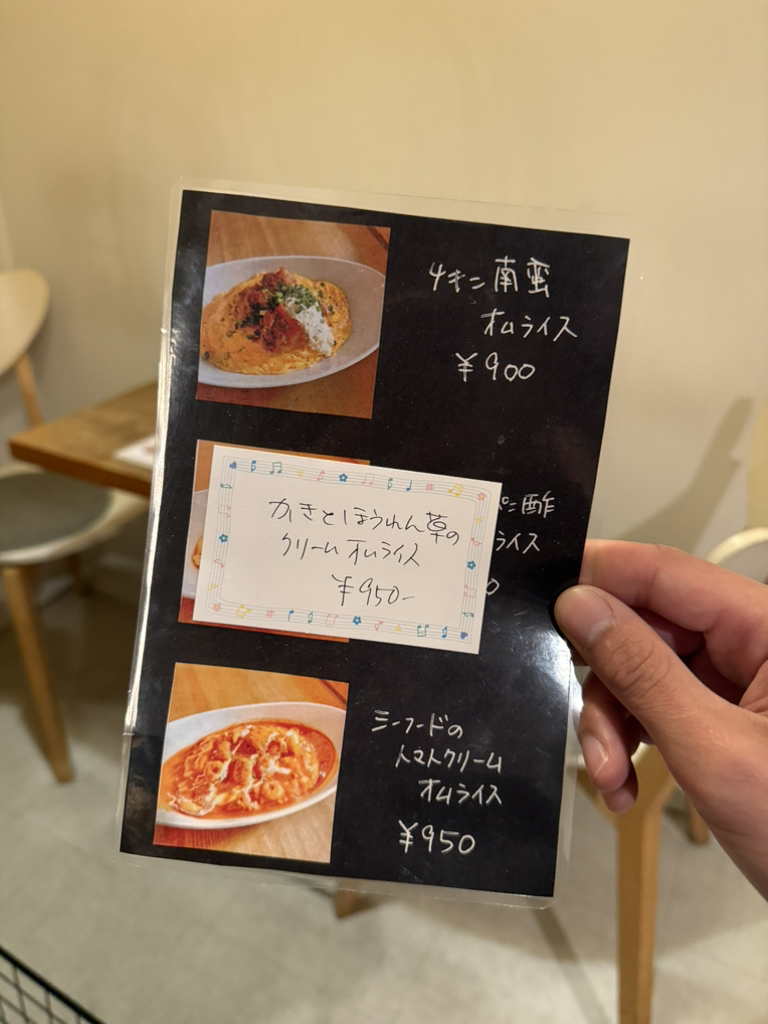 チキン南蛮
オムライス
¥900
かきとほうれん草の
クリームオムライス
¥950-
酢
ライス
0
シーフードの
トマトクリーム
オムライス
¥950